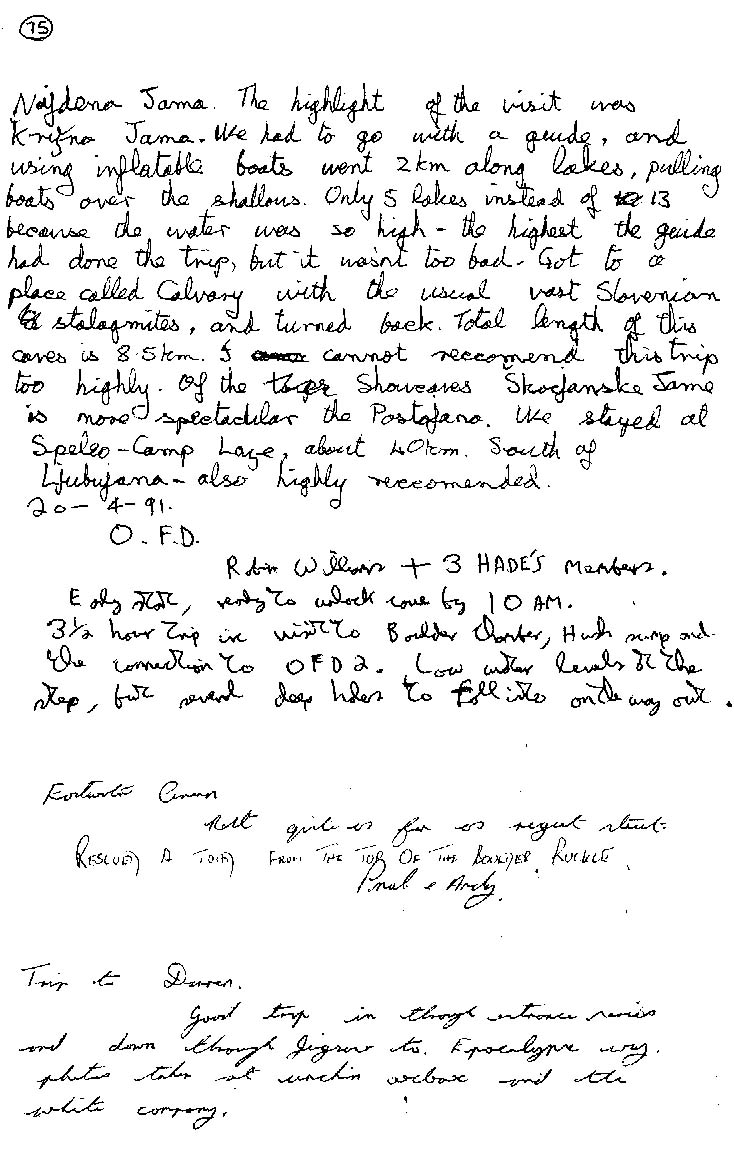 75
Najdena Jama. The highlight of the visit was
Krizna Jama. We had to go with a guide, and
using inflatable boats went 2km along lakes, pulling
boats over the shallows. Only 5 lakes instead of 13
because the water was so high - the highest the guide
had done the trip, but it wasn't too bad. Got to a
place called Calvary with the usual vast Slovenian
stalagmites, and turned back. Total length of this
caves is 8.5km. I cannot reccomend this trip
too highly. Of the Showcaves Skocjanske Jame
is more spectacular the Postojana. We stayed at
Speleo-Camp Laze, about 40km. South of
Ljubujana - also highly reccomended.
20-4-91.
O.F.D.
Robin Williams + 3 HADES Members.
Early start, ready to unlock cave by 10 AM.
3½ hour trip in visit to Boulder Chamber, Hush sump and
the connection to OFD 2. Low water levels at the
step, but several deep holes to fall into on the way out.
Rescued A From The Top Of The Boulder Ruckle
Paul & Andy.
Trip to Darren.
Good trip in though entrance series
and down though Jigsaw to. Epocalypse way.
photos taken at urchin oxbow and the
white company.